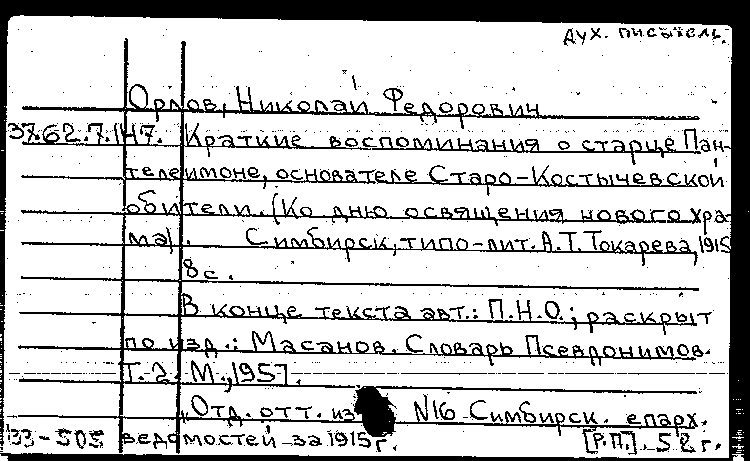 дух. писатель.
Орлов, Николай Федорович
37.62.7.147. Краткие воспоминания о старце Пан-
телеимоне, основателе Старо-Костычевской
обители. (Ко дню освящения нового хра-
ма). Симбирск, типо-лит. А.Т.Токарева, 1915
8 с.
В конце текста авт.: П.Н.О.; раскрыт
по изд.: Масанов. Словарь Псевдонимов.
Т. 2. М., 1957.
Отд. отт. из N16 Симбирск. епарх.
33-505 ведомостей за 1915 г. [Р.П.]. 52 г.